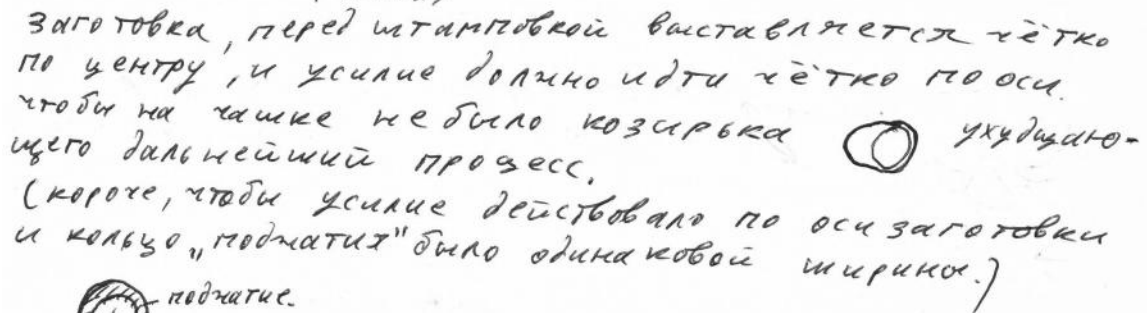 заготовка, перед штамповкой выставляется чётко
по центру, и усилие должно идти чётко по оси.
чтобы на чашке не было козырька ухудшаю-
щего дальнейший процесс.
(короче, чтобы усилие действовало по оси заготовки
и кольцо „поджатия" было одинаковой ширины.)
поджатие.